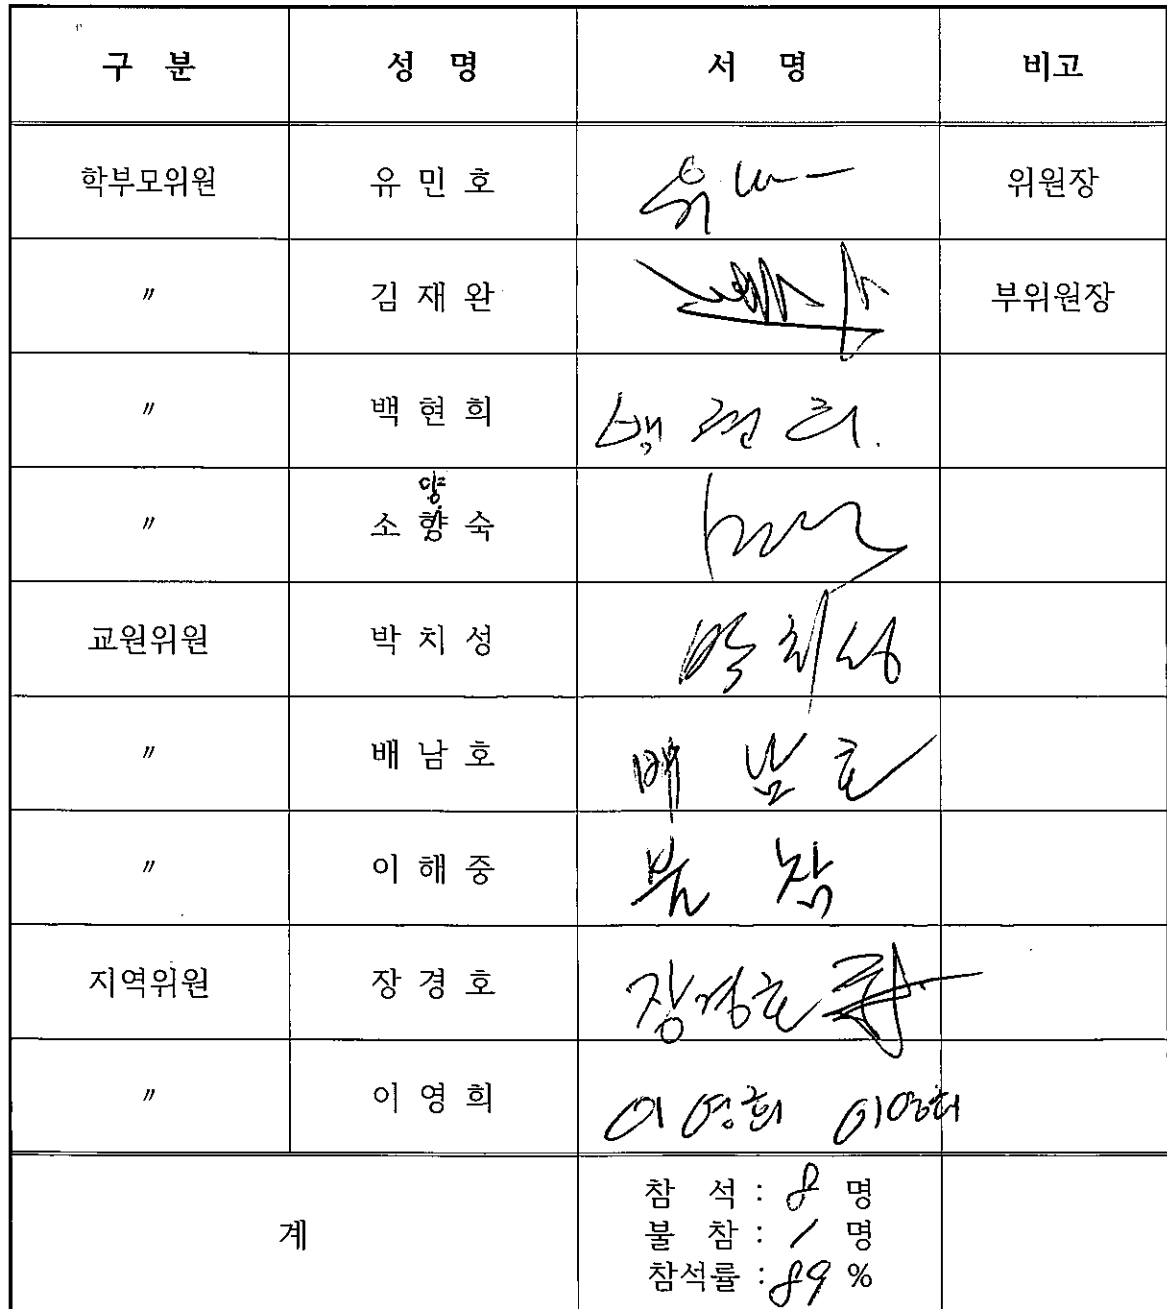 구 분 성 명 서 명 비고
학부모위원 유 민 호 유 위원장
〃 김 재 완 부위원장
〃 백 현 희 백 현 희.
양
〃 소 향 숙
교원위원 박 치 성 박 치 성
〃 배 남 호 배 남 호
〃 이 해 중 불 참
지역위원 장 경 호 장경호
〃 이 영 희 이 영희 이영희
참 석 : 8 명
계 불 참 : 1 명
참석률 : 89 %